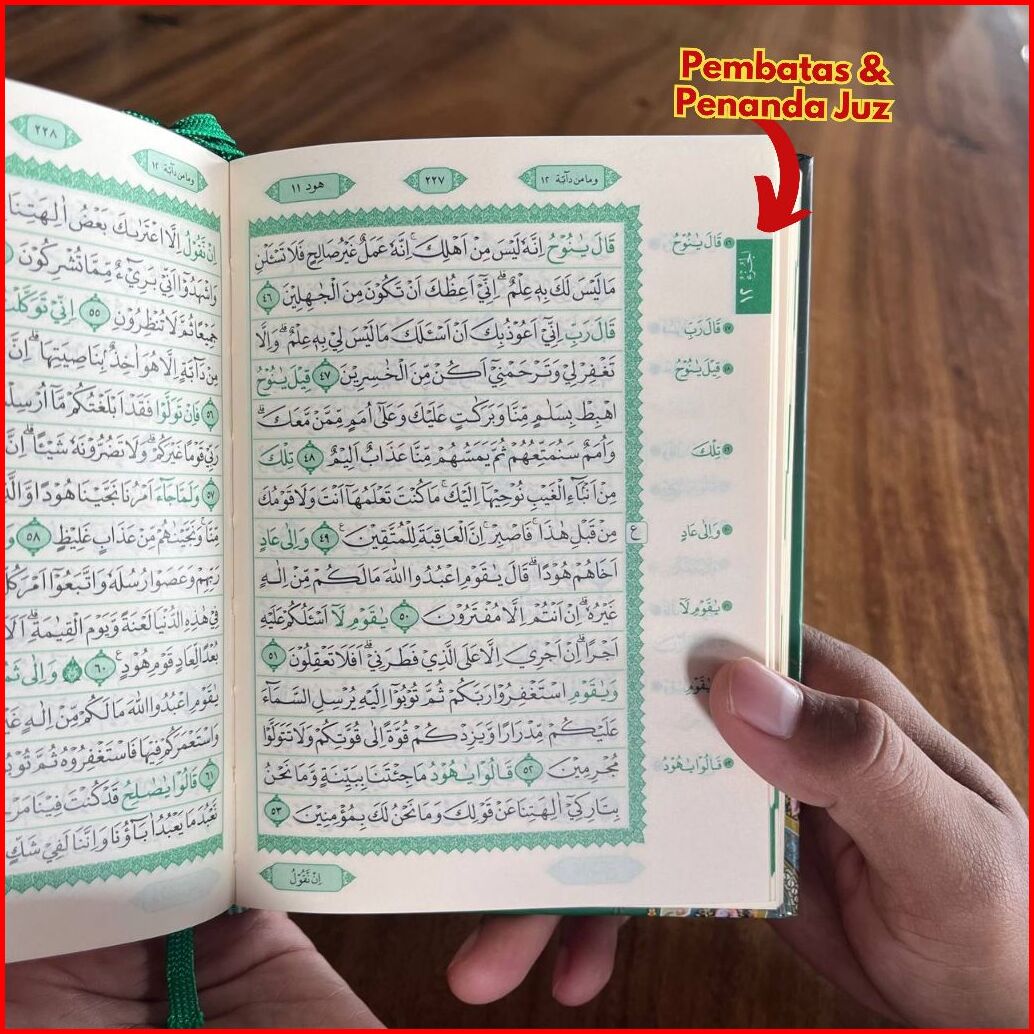 Pembatas &
Penanda Juz
وما من دآبّة ١٢
٢٢٧
هود ١١
قَالَ يٰنُوْحُ اِنَّهٗ لَيْسَ مِنْ اَهْلِكَ ۚاِنَّهٗ عَمَلٌ غَيْرُ صَالِحٍ فَلَا تَسْـَٔلْنِ
مَا لَيْسَ لَكَ بِهٖ عِلْمٌ ۗاِنِّيْٓ اَعِظُكَ اَنْ تَكُوْنَ مِنَ الْجٰهِلِيْنَ ٤٦
قَالَ رَبِّ اِنِّيْٓ اَعُوْذُ بِكَ اَنْ اَسْـَٔلَكَ مَا لَيْسَ لِيْ بِهٖ عِلْمٌ ۗوَاِلَّا
تَغْفِرْ لِيْ وَتَرْحَمْنِيْٓ اَكُنْ مِّنَ الْخٰسِرِيْنَ ٤٧ قِيْلَ يٰنُوْحُ
اهْبِطْ بِسَلٰمٍ مِّنَّا وَبَرَكٰتٍ عَلَيْكَ وَعَلٰٓى اُمَمٍ مِّمَّنْ مَّعَكَ ۗ
وَاُمَمٌ سَنُمَتِّعُهُمْ ثُمَّ يَمَسُّهُمْ مِّنَّا عَذَابٌ اَلِيْمٌ ٤٨ تِلْكَ
مِنْ اَنْۢبَاۤءِ الْغَيْبِ نُوْحِيْهَآ اِلَيْكَ ۚمَا كُنْتَ تَعْلَمُهَآ اَنْتَ وَلَا قَوْمُكَ
مِنْ قَبْلِ هٰذَا ۚفَاصْبِرْ ۚاِنَّ الْعَاقِبَةَ لِلْمُتَّقِيْنَ ۚ ٤٩ وَاِلٰى عَادٍ
اَخَاهُمْ هُوْدًا ۗقَالَ يٰقَوْمِ اعْبُدُوا اللّٰهَ مَا لَكُمْ مِّنْ اِلٰهٍ
غَيْرُهٗ ۗاِنْ اَنْتُمْ اِلَّا مُفْتَرُوْنَ ٥٠ يٰقَوْمِ لَآ اَسْـَٔلُكُمْ عَلَيْهِ
اَجْرًا ۗاِنْ اَجْرِيَ اِلَّا عَلَى الَّذِيْ فَطَرَنِيْ ۗاَفَلَا تَعْقِلُوْنَ ٥١
وَيٰقَوْمِ اسْتَغْفِرُوْا رَبَّكُمْ ثُمَّ تُوْبُوْٓا اِلَيْهِ يُرْسِلِ السَّمَاۤءَ
عَلَيْكُمْ مِّدْرَارًا وَّيَزِدْكُمْ قُوَّةً اِلٰى قُوَّتِكُمْ وَلَا تَتَوَلَّوْا
مُجْرِمِيْنَ ٥٢ قَالُوْا يٰهُوْدُ مَا جِئْتَنَا بِبَيِّنَةٍ وَّمَا نَحْنُ
بِتَارِكِيْٓ اٰلِهَتِنَا عَنْ قَوْلِكَ وَمَا نَحْنُ لَكَ بِمُؤْمِنِيْنَ ٥٣
اِنْ نَّقُوْلُ
ع
الجزء ١٢
قَالَ يٰنُوْحُ
قَالَ رَبِّ
قِيْلَ يٰنُوْحُ
تِلْكَ
وَاِلٰى عَادٍ
يٰقَوْمِ لَآ
قَالُوْا يٰهُوْدُ
وما من دآبّة ١٢
٢٢٨
اِنْ نَّقُوْلُ اِلَّا اعْتَرٰىكَ بَعْضُ اٰلِهَتِنَا
وَاشْهَدُوْٓا اَنِّيْ بَرِيْۤءٌ مِّمَّا تُشْرِكُوْنَ
جَمِيْعًا ثُمَّ لَا تُنْظِرُوْنِ ٥٥ اِنِّيْ تَوَكَّلْتُ
مِنْ دَاۤبَّةٍ اِلَّا هُوَ اٰخِذٌۢ بِنَاصِيَتِهَا ۗاِنَّ
٥٦ فَاِنْ تَوَلَّوْا فَقَدْ اَبْلَغْتُكُمْ مَّآ اُرْسِلْ
رَبِّيْ قَوْمًا غَيْرَكُمْ ۗوَلَا تَضُرُّوْنَهٗ شَيْـًٔا ۗاِنَّ
٥٧ وَلَمَّا جَاۤءَ اَمْرُنَا نَجَّيْنَا هُوْدًا وَّالَّ
مِّنَّا ۚوَنَجَّيْنٰهُمْ مِّنْ عَذَابٍ غَلِيْظٍ ٥٨
رَبِّهِمْ وَعَصَوْا رُسُلَهٗ وَاتَّبَعُوْٓا اَمْرَ كُلِّ
فِيْ هٰذِهِ الدُّنْيَا لَعْنَةً وَّيَوْمَ الْقِيٰمَةِ ۗاَلَآ
بُعْدًا لِّعَادٍ قَوْمِ هُوْدٍ ۚ ٦٠ وَاِلٰى
يٰقَوْمِ اعْبُدُوا اللّٰهَ مَا لَكُمْ مِّنْ اِلٰهٍ
وَاسْتَعْمَرَكُمْ فِيْهَا فَاسْتَغْفِرُوْهُ ثُمَّ
٦١ قَالُوْا يٰصٰلِحُ قَدْ كُنْتَ فِيْنَا
نَّعْبُدَ مَا يَعْبُدُ اٰبَاۤؤُنَا وَاِنَّنَا لَفِيْ شَكٍّ